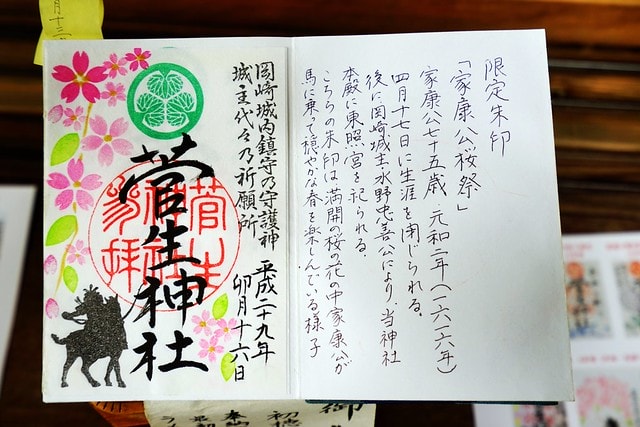 限定朱印
「家康公桜祭」
家康公七十五歳 元和二年(一六一六年)
四月十七日に生涯を閉じられる。
後に岡崎城主水野忠善公により、当神社
本殿に東照宮を祀られる。
こちらの朱印は満開の桜の花の中家康公が
馬に乗って穏やかな春を楽しんでいる様子
岡崎城内鎮守乃守護神 平成二十九年
城主代々乃祈願所 卯月十六日
菅生神社